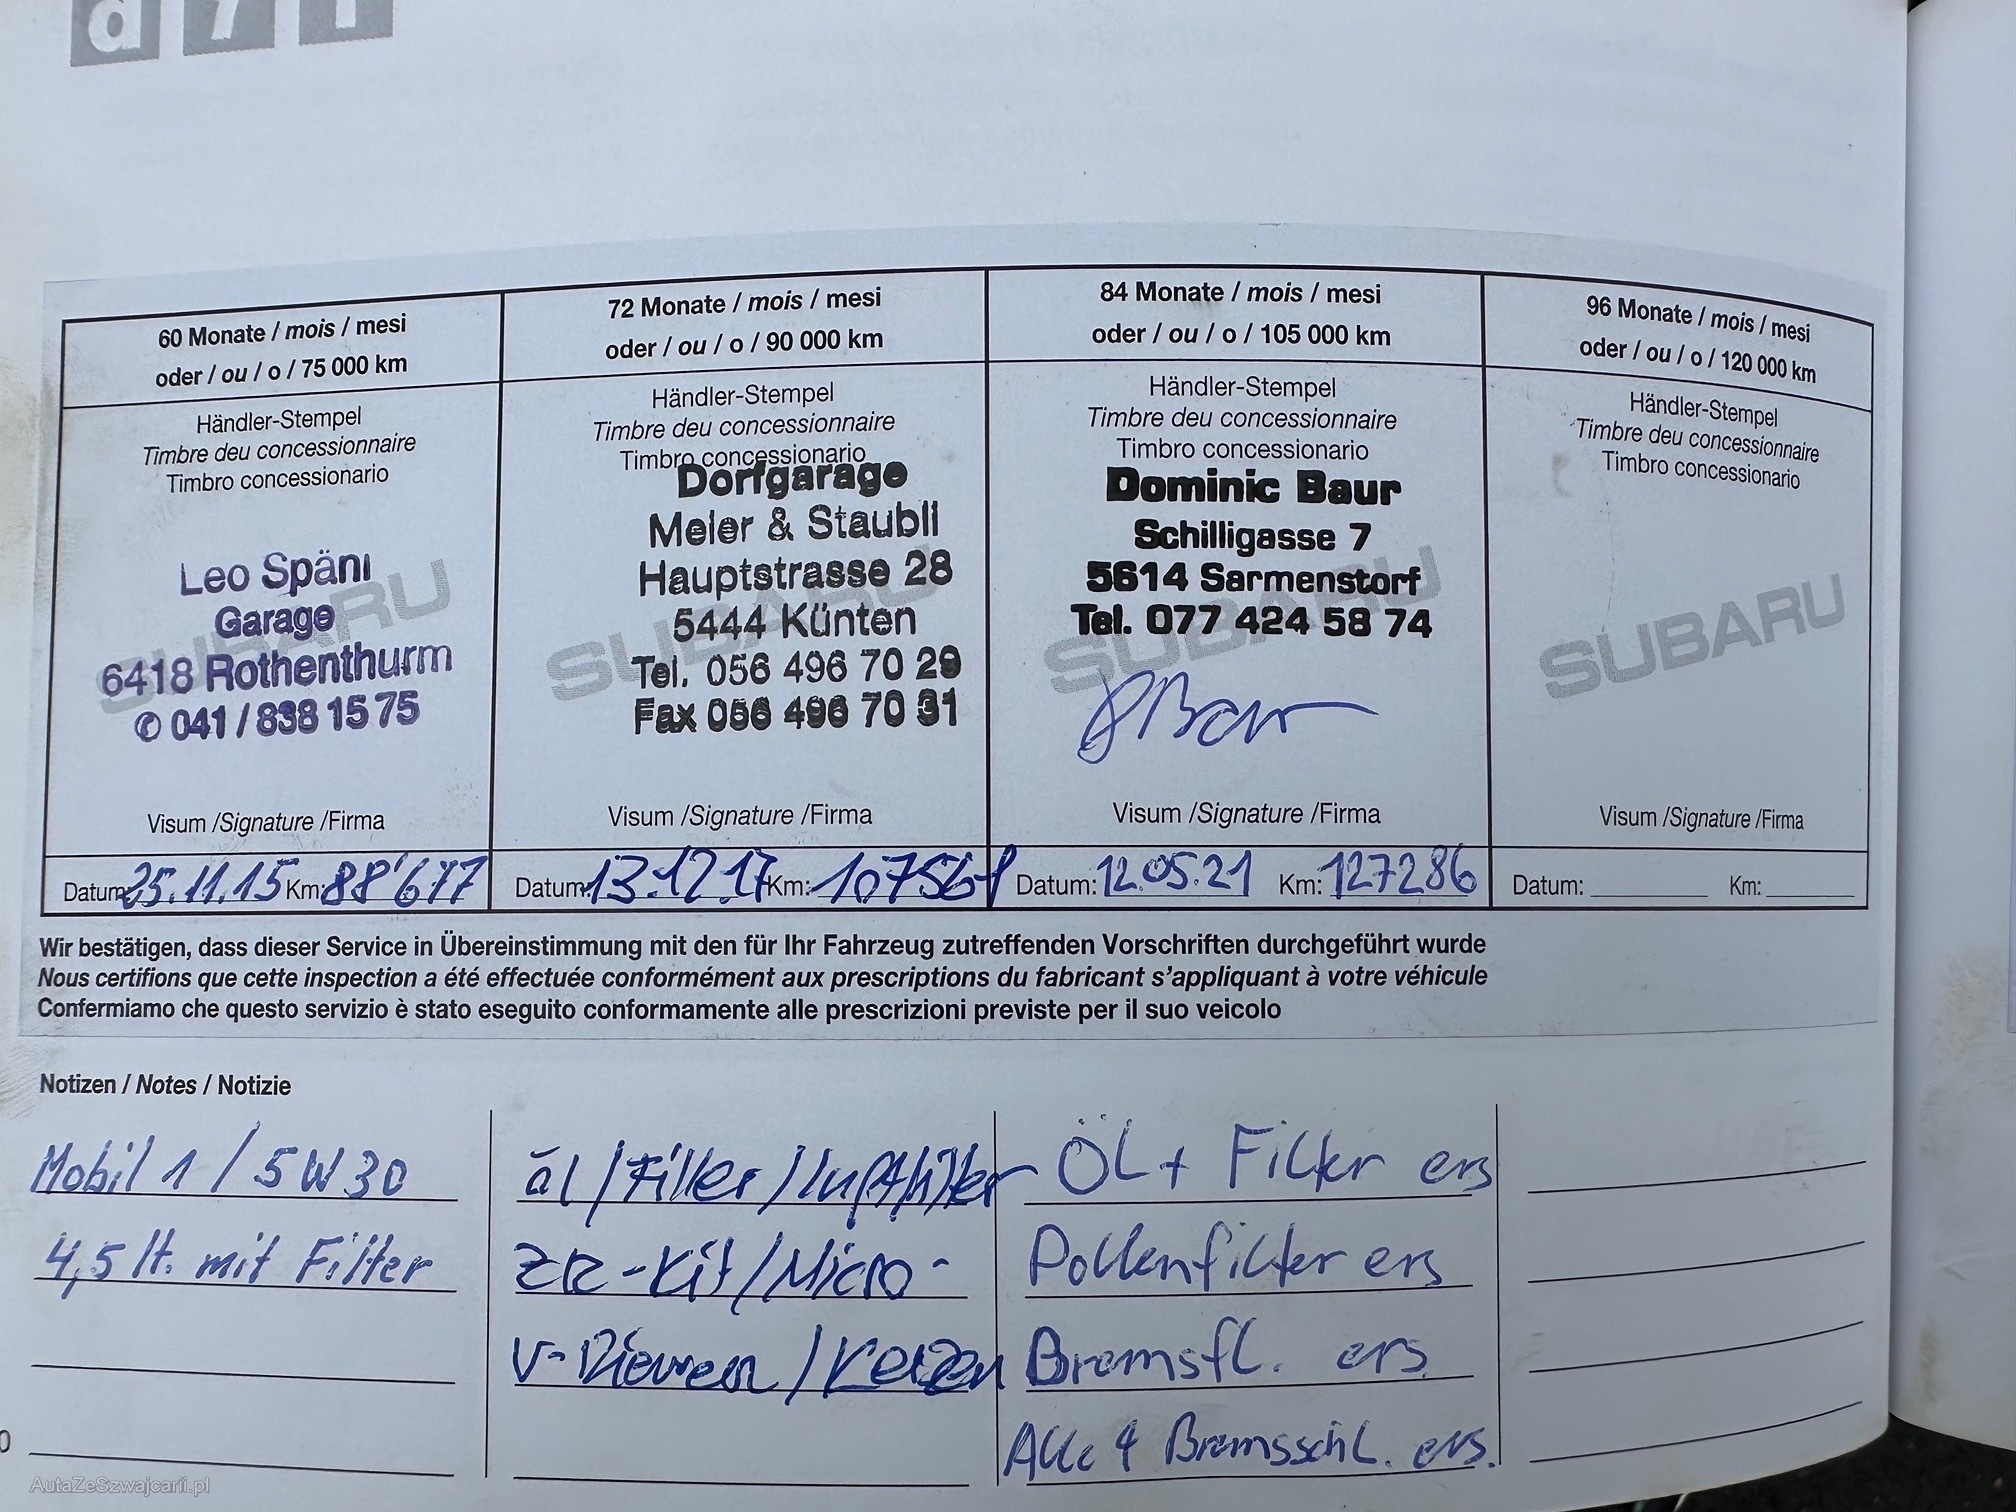 60 Monate / mois / mesi
oder / ou / o / 75 000 km
Händler-Stempel
Timbre deu concessionnaire
Timbro concessionario
SUBARU
Leo Späni
Garage
6418 Rothenthurm
✆ 041 / 838 15 75
Visum /Signature /Firma
Datum: 25.11.15 Km: 88'677
72 Monate / mois / mesi
oder / ou / o / 90 000 km
Händler-Stempel
Timbre deu concessionnaire
Timbro concessionario
SUBARU
Dorfgarage
Meier & Staubli
Hauptstrasse 28
5444 Künten
Tel. 056 496 70 29
Fax 056 496 70 31
Visum /Signature /Firma
Datum: 13.12.17 Km: 107561
84 Monate / mois / mesi
oder / ou / o / 105 000 km
Händler-Stempel
Timbre deu concessionnaire
Timbro concessionario
SUBARU
Dominic Baur
Schilligasse 7
5614 Sarmenstorf
Tel. 077 424 58 74
Visum /Signature /Firma
Datum: 12.05.21 Km: 127286
96 Monate / mois / mesi
oder / ou / o / 120 000 km
Händler-Stempel
Timbre deu concessionnaire
Timbro concessionario
SUBARU
Visum /Signature /Firma
Datum: Km:
Wir bestätigen, dass dieser Service in Übereinstimmung mit den für Ihr Fahrzeug zutreffenden Vorschriften durchgeführt wurde
Nous certifions que cette inspection a été effectuée conformément aux prescriptions du fabricant s'appliquant à votre véhicule
Confermiamo che questo servizio è stato eseguito conformamente alle prescrizioni previste per il suo veicolo
Notizen / Notes / Notizie
Mobil 1 / 5W30
4,5 lt. mit Filter
öl/Filter/Luftfilter
ZR-Kit/Micro-
V-Riemen/Kerzen
ÖL + Filter ers
Pollenfilter ers
Bremsfl. ers
Alle 4 Bremsschl. ers.
AutaZeSzwajcarii.pl